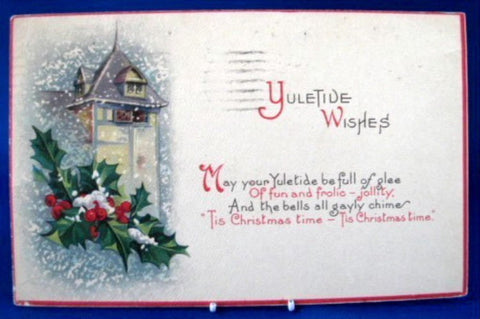 Yuletide
Wishes
May your Yuletide be full of glee
Of fun and frolic – jollity,
And the bells all gayly chime
"'Tis Christmas time – 'Tis Christmas time."